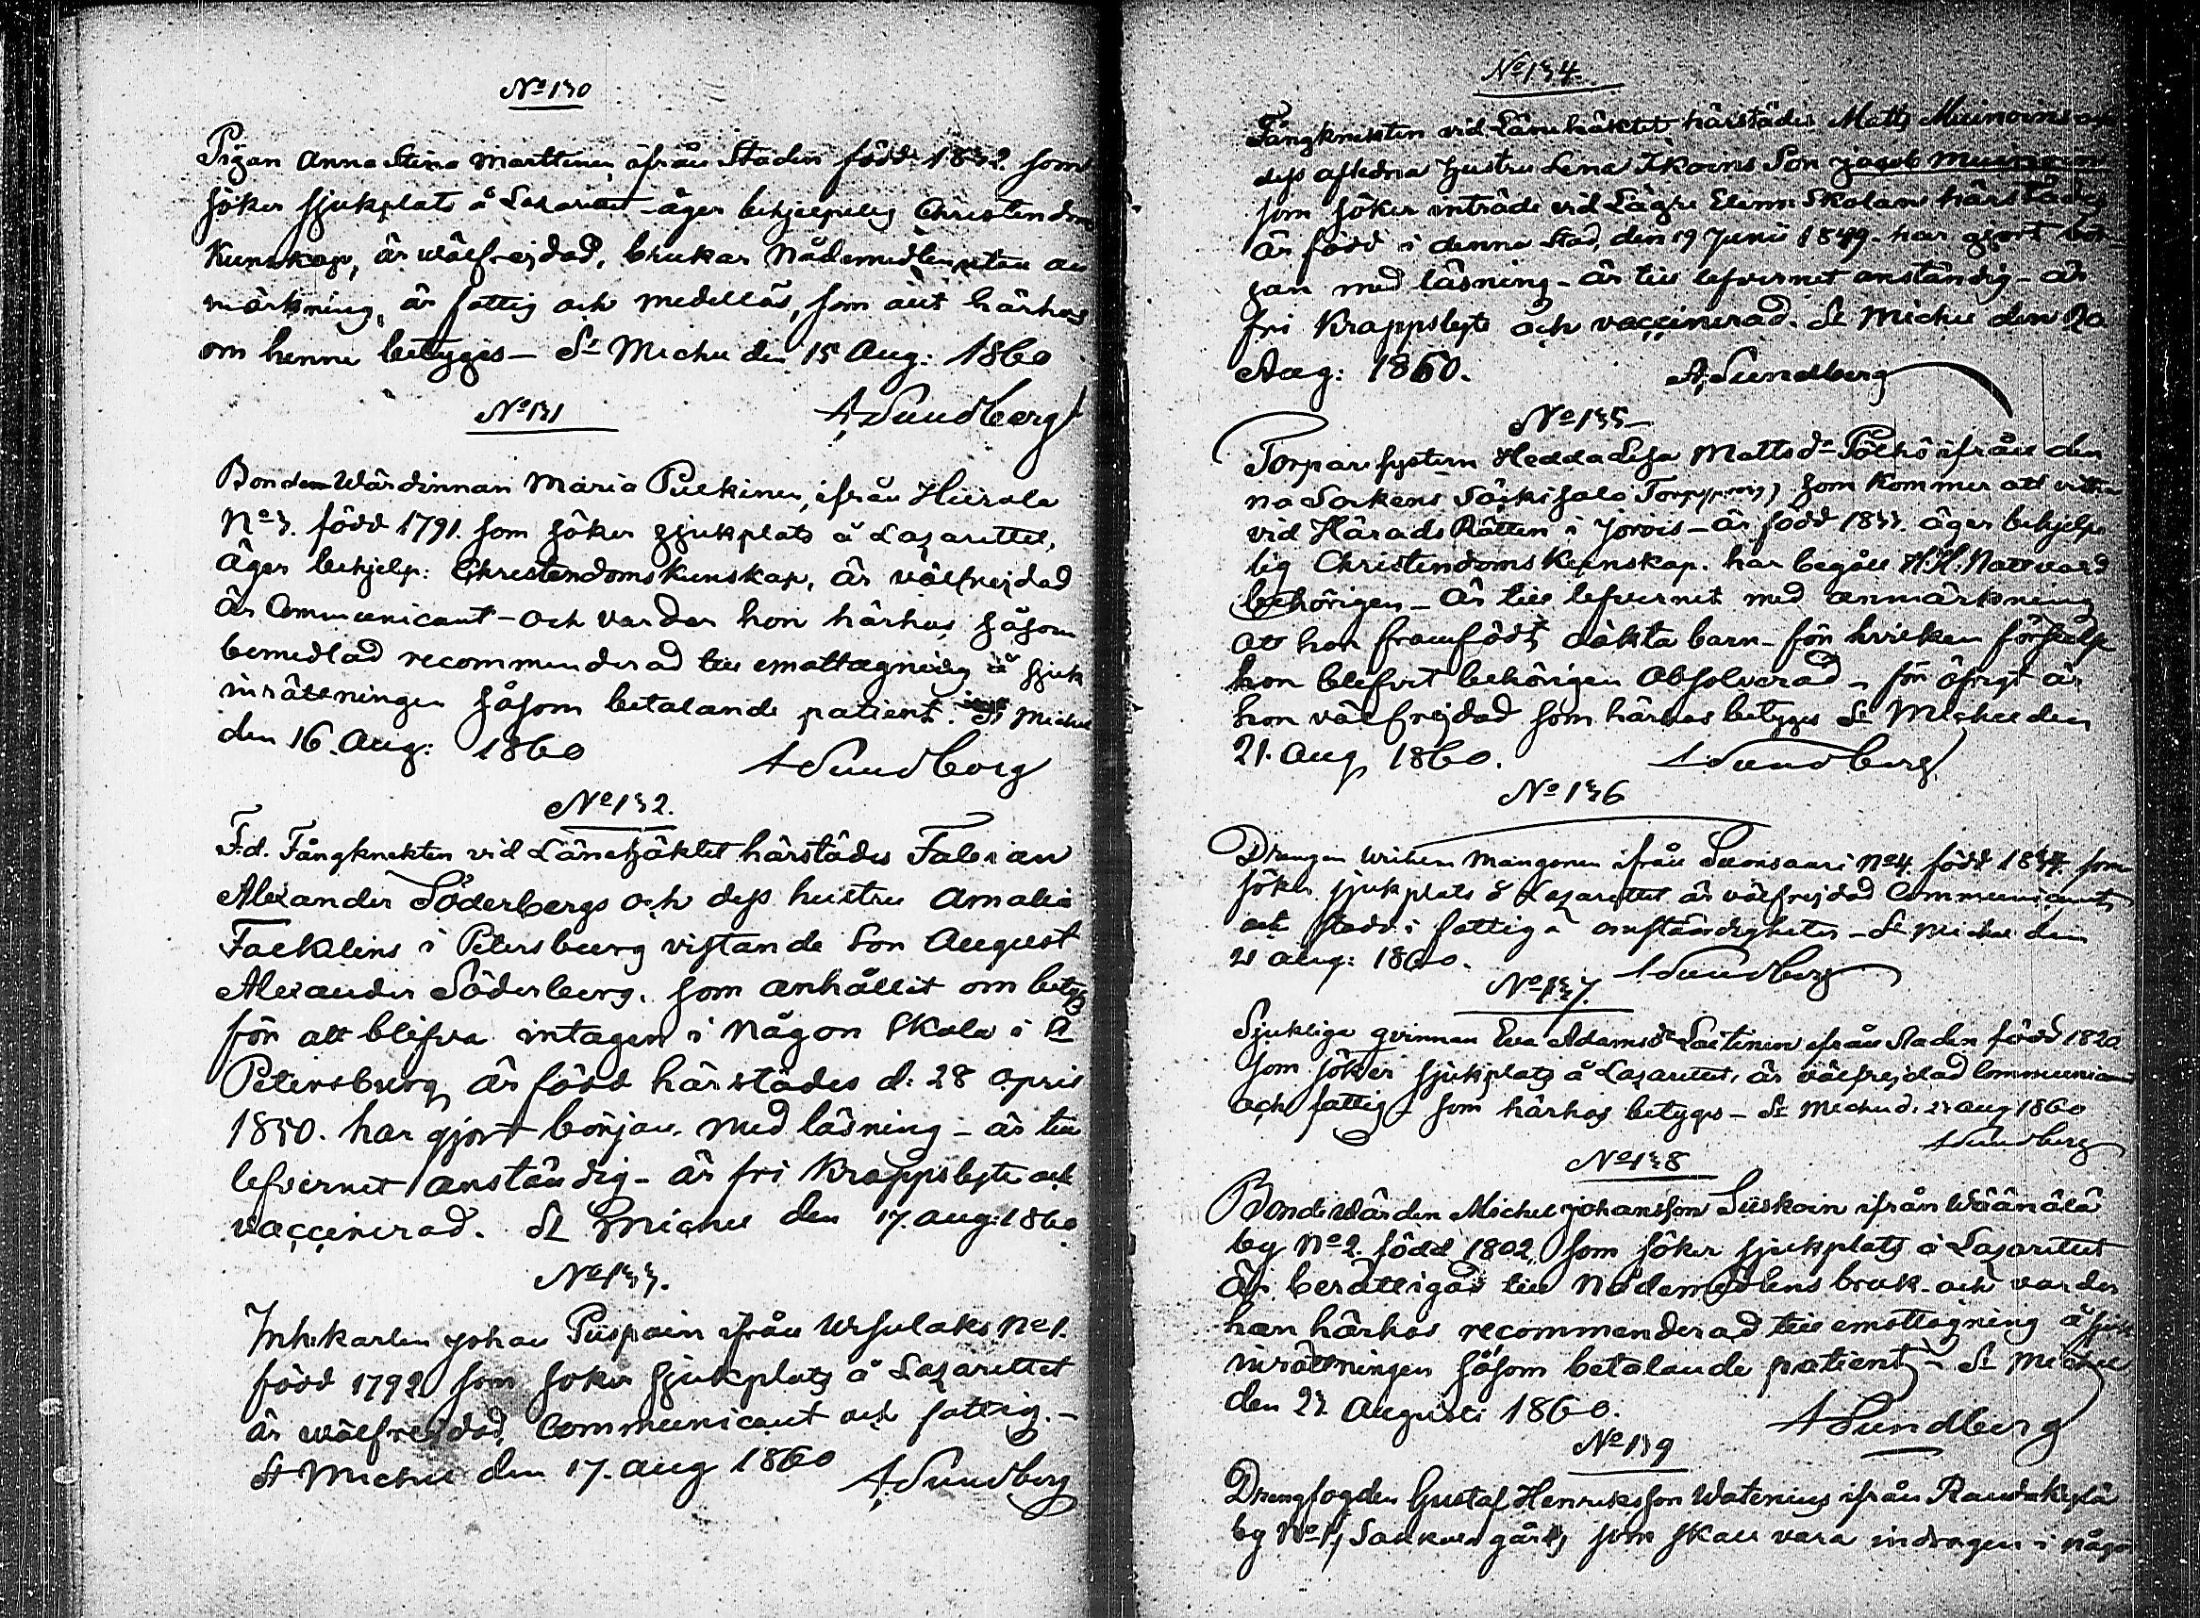 No 130
Pigan Anna Stina Marttinen ifrån Staden född 1832. som
söker sjukplats å Lazarettet äger behjelpelig Christendoms
Kunskap, är wälfrejdad, brukar Nådemedlen utan an
märkning, är fattig och medellös, som allt härhos
om henne betygas – St Michel den 15 Aug: 1860
A Sundberg
No 131
Bonde Wärdinnan Maria Pulkinen, ifrån Hiirola
No 3. född 1791. som söker sjukplats å Lazarettet,
äger behjelp: Christendomskunskap, är välfrejdad
är Communicant – och varder hon härhos såsom
bemedlad recommenderad till emottagning å sjuk
inrättningen såsom betalande patient. St Michel
den 16. Aug: 1860
A Sundberg
No 132.
F.d. Fångknekten vid Länehäktet härstädes Fabian
Alexander Söderbergs och dess hustru Amalia
Facklins i Petersburg vistande Son August
Alexander Söderberg, som anhållit om betyg
för att blifva intagen i någon Skola i St
Petersburg, är född härstädes d: 28 April
1850. har gjort början med läsning – är till
lefvernet anständig – är fri Krappslyte och
vaccinerad. St Michel den 17. aug: 1860
No 133.
Inh: karlen Johan Piispain ifrån Ursulaks No 1.
född 1792 som söker sjukplats å Lazarettet
är wälfrejdad, Communicant och fattig. –
St Michel den 17. aug 1860
A Sundberg
No 134.
Fångknekten vid Länehäktet härstädes Matts Muinoins och
dess aflidna Hustru Lena Ikoins Son Jacob Muinoin
som söker inträde vid Lägre Elem: Skolan härstädes
är född i denna Stad, den 19 Junii 1849. har gjort bör
jan med läsning – är till lefvernet anständig – är
fri Krappslyte och vaccinerad. St Michel den 20
Aug: 1860.
A Sundberg
No 135
Torpare systern Hedda Lisa Mattsdr Pölhö ifrån den
na Sockens torp, som kommer att vittna
vid Härads Rätten i Jorois – är född 1833. äger behjelp
lig Christendoms Kunskap. har begått H.H. Nattvard
behörigen – är till lefvernet med anmärkning
att hon framfödt oäkta barn – för hvilken förseelse
hon blifvit behörigen Absolverad – för öfrigt är
hon välfrejdad som härhos betygas St Michel den
21. Aug 1860.
A Sundberg
No 136
Drengen Wilhem Mangonen ifrån Suonsaari No 4. född 1834. som
söker sjukplats å Lazarettet är välfrejdad Communicant
och stadd i fattiga omständigheter – St Michel den
21 aug: 1860.
A Sundberg
No 137.
Sjukliga qvinnan Eva Adamsdr Laitinen ifrån Staden född 1820
som söker sjukplats å Lazarettet, är välfrejdad Communicant
och fattig – som härhos betygas – St Michel d. 23 aug 1860
A Sundberg
No 138
Bonde Wärden Michel Johansson Liiskoin ifrån Wäänälä
by No 2. född 1802, som söker sjukplats å Lazarettet
är berättigad till Nådemedlens bruk – och varder
han härhos recommenderad till emottagning å sjuk
inrättningen såsom betalande patient – St Michel
den 23 Augusti 1860.
A Sundberg
No 139
Drengfogden Gustaf Henriksson Watenius ifrån Randakylä
by No 1, gård, som skall vara indragen i någo